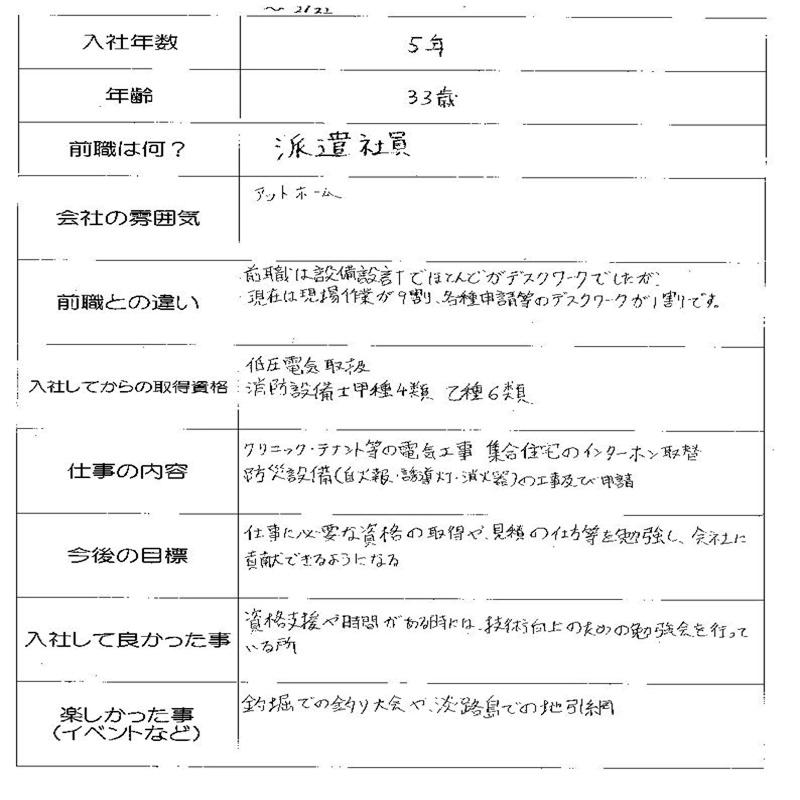 入社年数 5年
年齢 33歳
前職は何？ 派遣社員
会社の雰囲気 アットホーム
前職との違い 前職は設備設計でほとんどがデスクワークでしたが、
現在は現場作業が9割、各種申請等のデスクワークが1割りです。
入社してからの取得資格 低圧電気取扱
消防設備士甲種4類 乙種6類
仕事の内容 クリニック・テナント等の電気工事 集合住宅のインターホン取替
防災設備(自火報・誘導灯・消火器)の工事及び申請
今後の目標 仕事に必要な資格の取得や、見積の仕方等を勉強し、会社に
貢献できるようになる
入社して良かった事 資格支援や時間がある時には、技術向上のための勉強会を行って
いる所
楽しかった事
(イベントなど) 釣堀での釣り大会や、淡路島での地引網